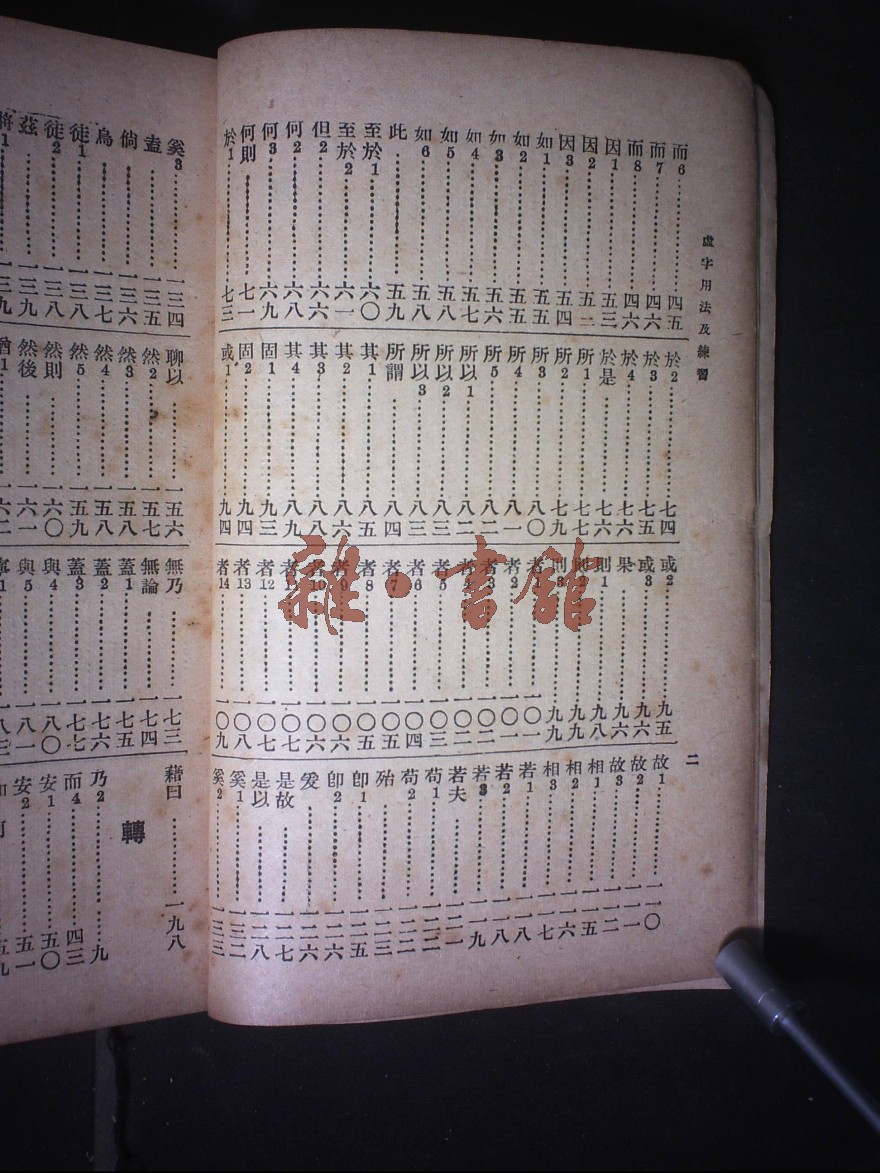 虛字用法及練習
二
而6 四五
而7 四六
而8 四六
因1 五三
因2
因3 五四
如1 五五
如2 五五
如3 五六
如4 五七
如5 五八
如6 五八
此 五九
至於1 六〇
至於2 六一
但2 六六
何2 六八
何3 六九
何則 七一
於1 七三
於2 七四
於3 七五
於4 七六
於是 七六
所1 七七
所2 七九
所3 八〇
所4 八一
所5 八二
所以1 八二
所以2 八三
所以3 八三
所謂 八四
其1 八五
其2 八六
其3 八八
其4 八九
固1 九三
固2 九四
或1 九四
或2 九五
或3 九六
果 九六
則1 九八
則2 九九
則3 九九
者1 一〇一
者2 一〇一
者3 一〇二
者4 一〇二
者5 一〇三
者6 一〇四
者7 一〇五
者8 一〇五
者9 一〇六
者10 一〇六
者11 一〇七
者12 一〇七
者13 一〇八
者14 一〇九
故1 一一〇
故2 一一一
故3 一一二
相1 一一五
相2 一一六
相3 一一七
若1 一一八
若2 一一八
若3 一一九
若夫 一二一
苟1 一二二
苟2 一二二
殆 一二三
卽1 一二五
卽2 一二六
爰 一二六
是故 一二七
是以 一二八
奚1 一三二
奚2 一三三
奚3 一三四
盍 一三五
倘 一三六
烏 一三七
徒1 一三八
徒2 一三八
茲 一三九
將1 一三九
聊以 一五六
然2 一五七
然3 一五八
然4 一五八
然5 一五九
然則 一六〇
然後 一六一
猶1 一六二
無乃 一七三
無論 一七四
蓋1 一七五
蓋2 一七六
蓋3 一七七
與4 一八〇
與5 一八一
寧1 一八三
藉曰 一九八
轉
乃2 九
而4 四三
安1 五〇
安2 五一
五九
雜·書館